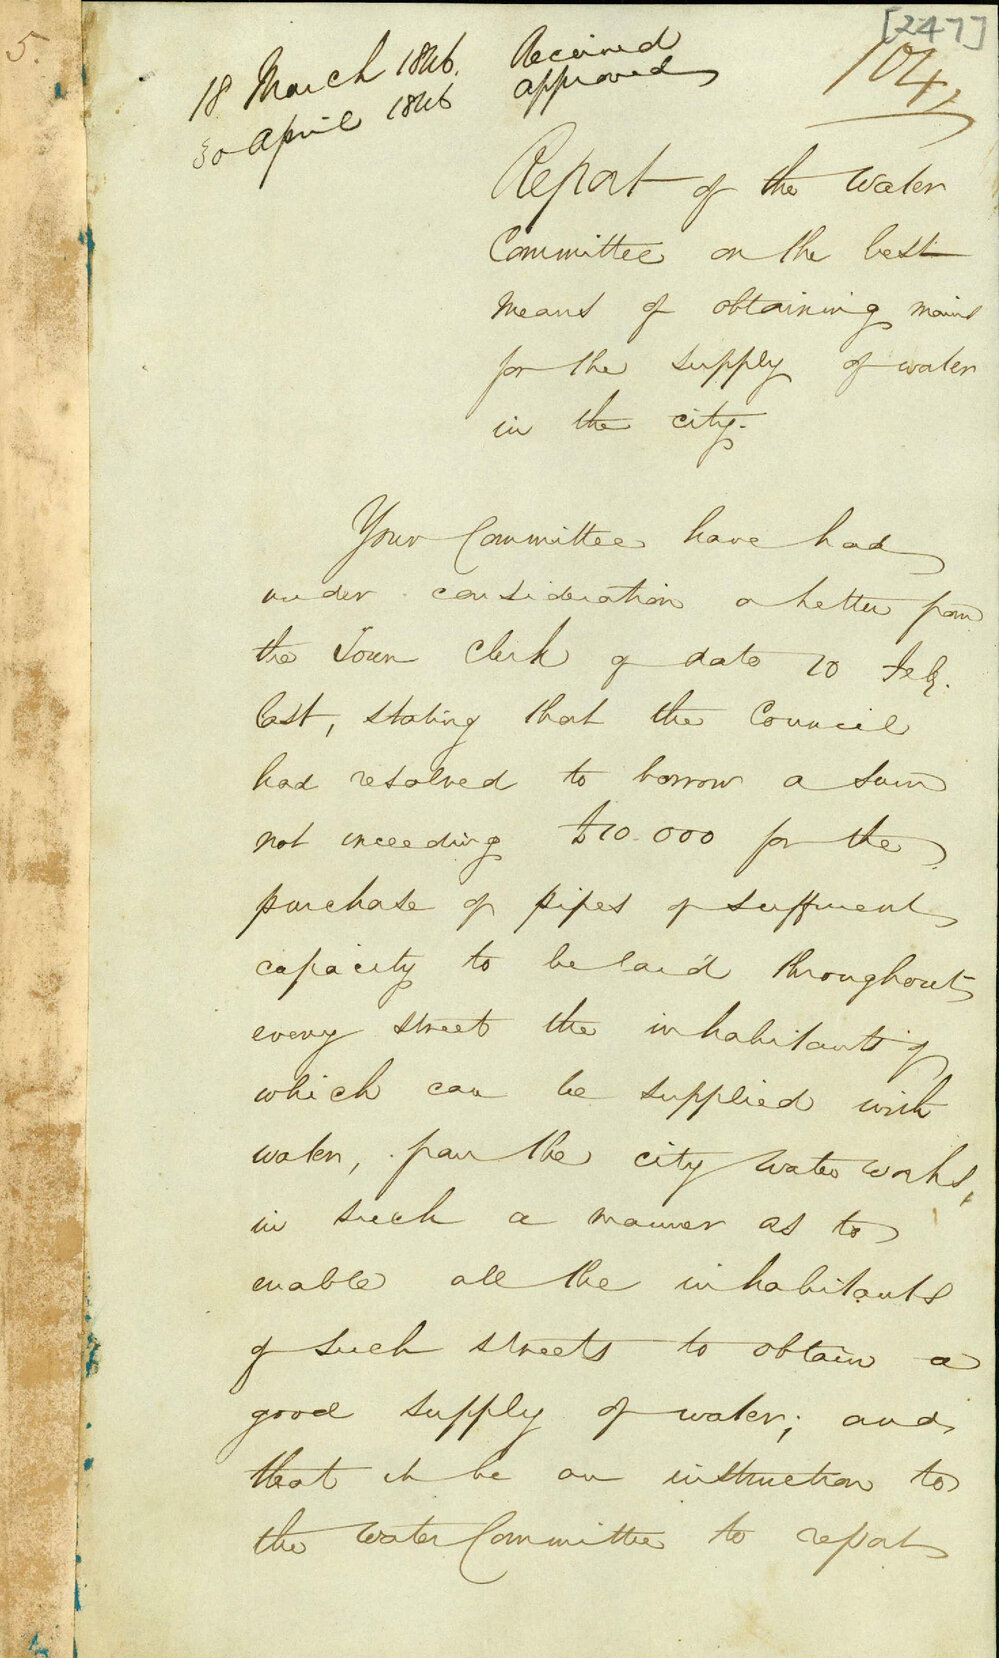 5.
[247]
104
18 March 1846. Received
30 April 1846 approved
Report of the Water
Committee on the best
means of obtaining mains
for the supply of water
in the city.
Your Committee have had
under consideration a letter from
the Town Clerk of date 10 Feby.
last, stating that the Council
had resolved to borrow a sum
not exceeding £10.000 for the
purchase of pipes of sufficient
capacity to be laid throughout
every street the inhabitants of
which can be supplied with
water, from the city water works,
in such a manner as to
enable all the inhabitants
of such streets to obtain a
good supply of water; and
that it be an instruction to
the Water Committee to report